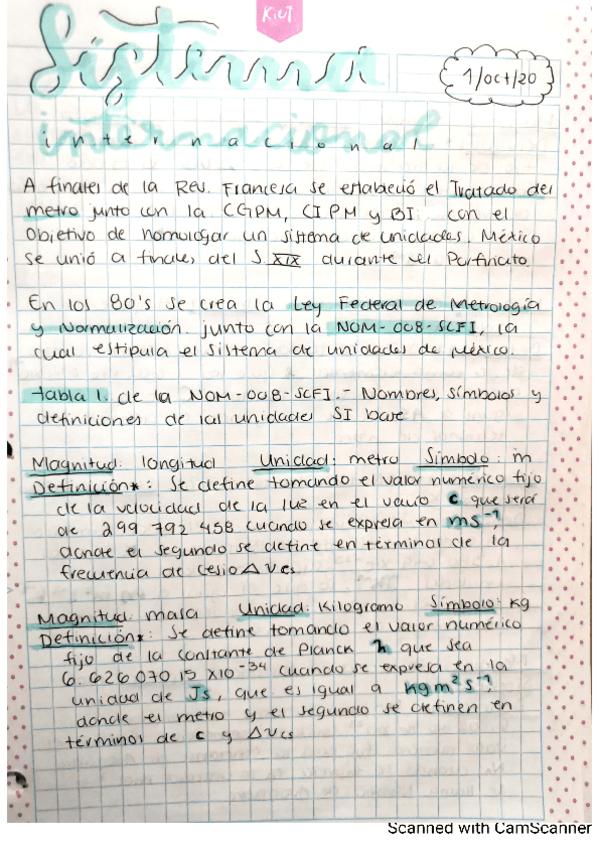 KiUT
Sistema
1/oct/20
internacional
A finales de la Rev. Francesa se estableció el Tratado del
metro junto con la CGPM, CIPM y BI con el
Objetivo de homologar un sistema de unidades. México
se unió a finales del S XIX durante el Porfiriato.
En los 80's se crea la Ley Federal de Metrología
y Normalización. junto con la NOM-008-SCFI, la
cual estipula el sistema de unidades de México.
tabla 1. de la NOM-008-SCFI.- Nombres, símbolos y
definiciones de las unidades SI base
Magnitud: longitud Unidad: metro Símbolo: m
Definición*: Se define tomando el valor numérico fijo
de la velocidad de la luz en el vacío c que será
de 299 792 458 cuando se expresa en ms⁻¹,
donde el segundo se define en términos de la
frecuencia de cesio Δνcs
Magnitud: masa Unidad: Kilogramo Símbolo: kg
Definición*: Se define tomando el valor numérico
fijo de la constante de Planck h que sea
6.626 070 15 x10⁻³⁴ cuando se expresa en la
unidad de Js, que es igual a kg m² s⁻¹,
donde el metro y el segundo se definen en
términos de c y Δνcs
Scanned with CamScanner